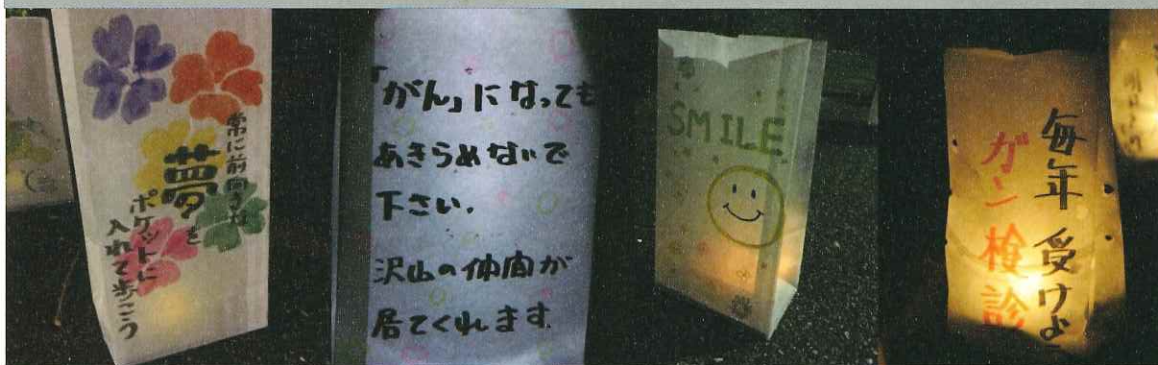 常に前向きな
夢を
ポケットに
入れて歩こう
「がん」になっても
あきらめないで
下さい。
沢山の仲間が
居てくれます。
SMILE
毎年 受けよ
ガン検診